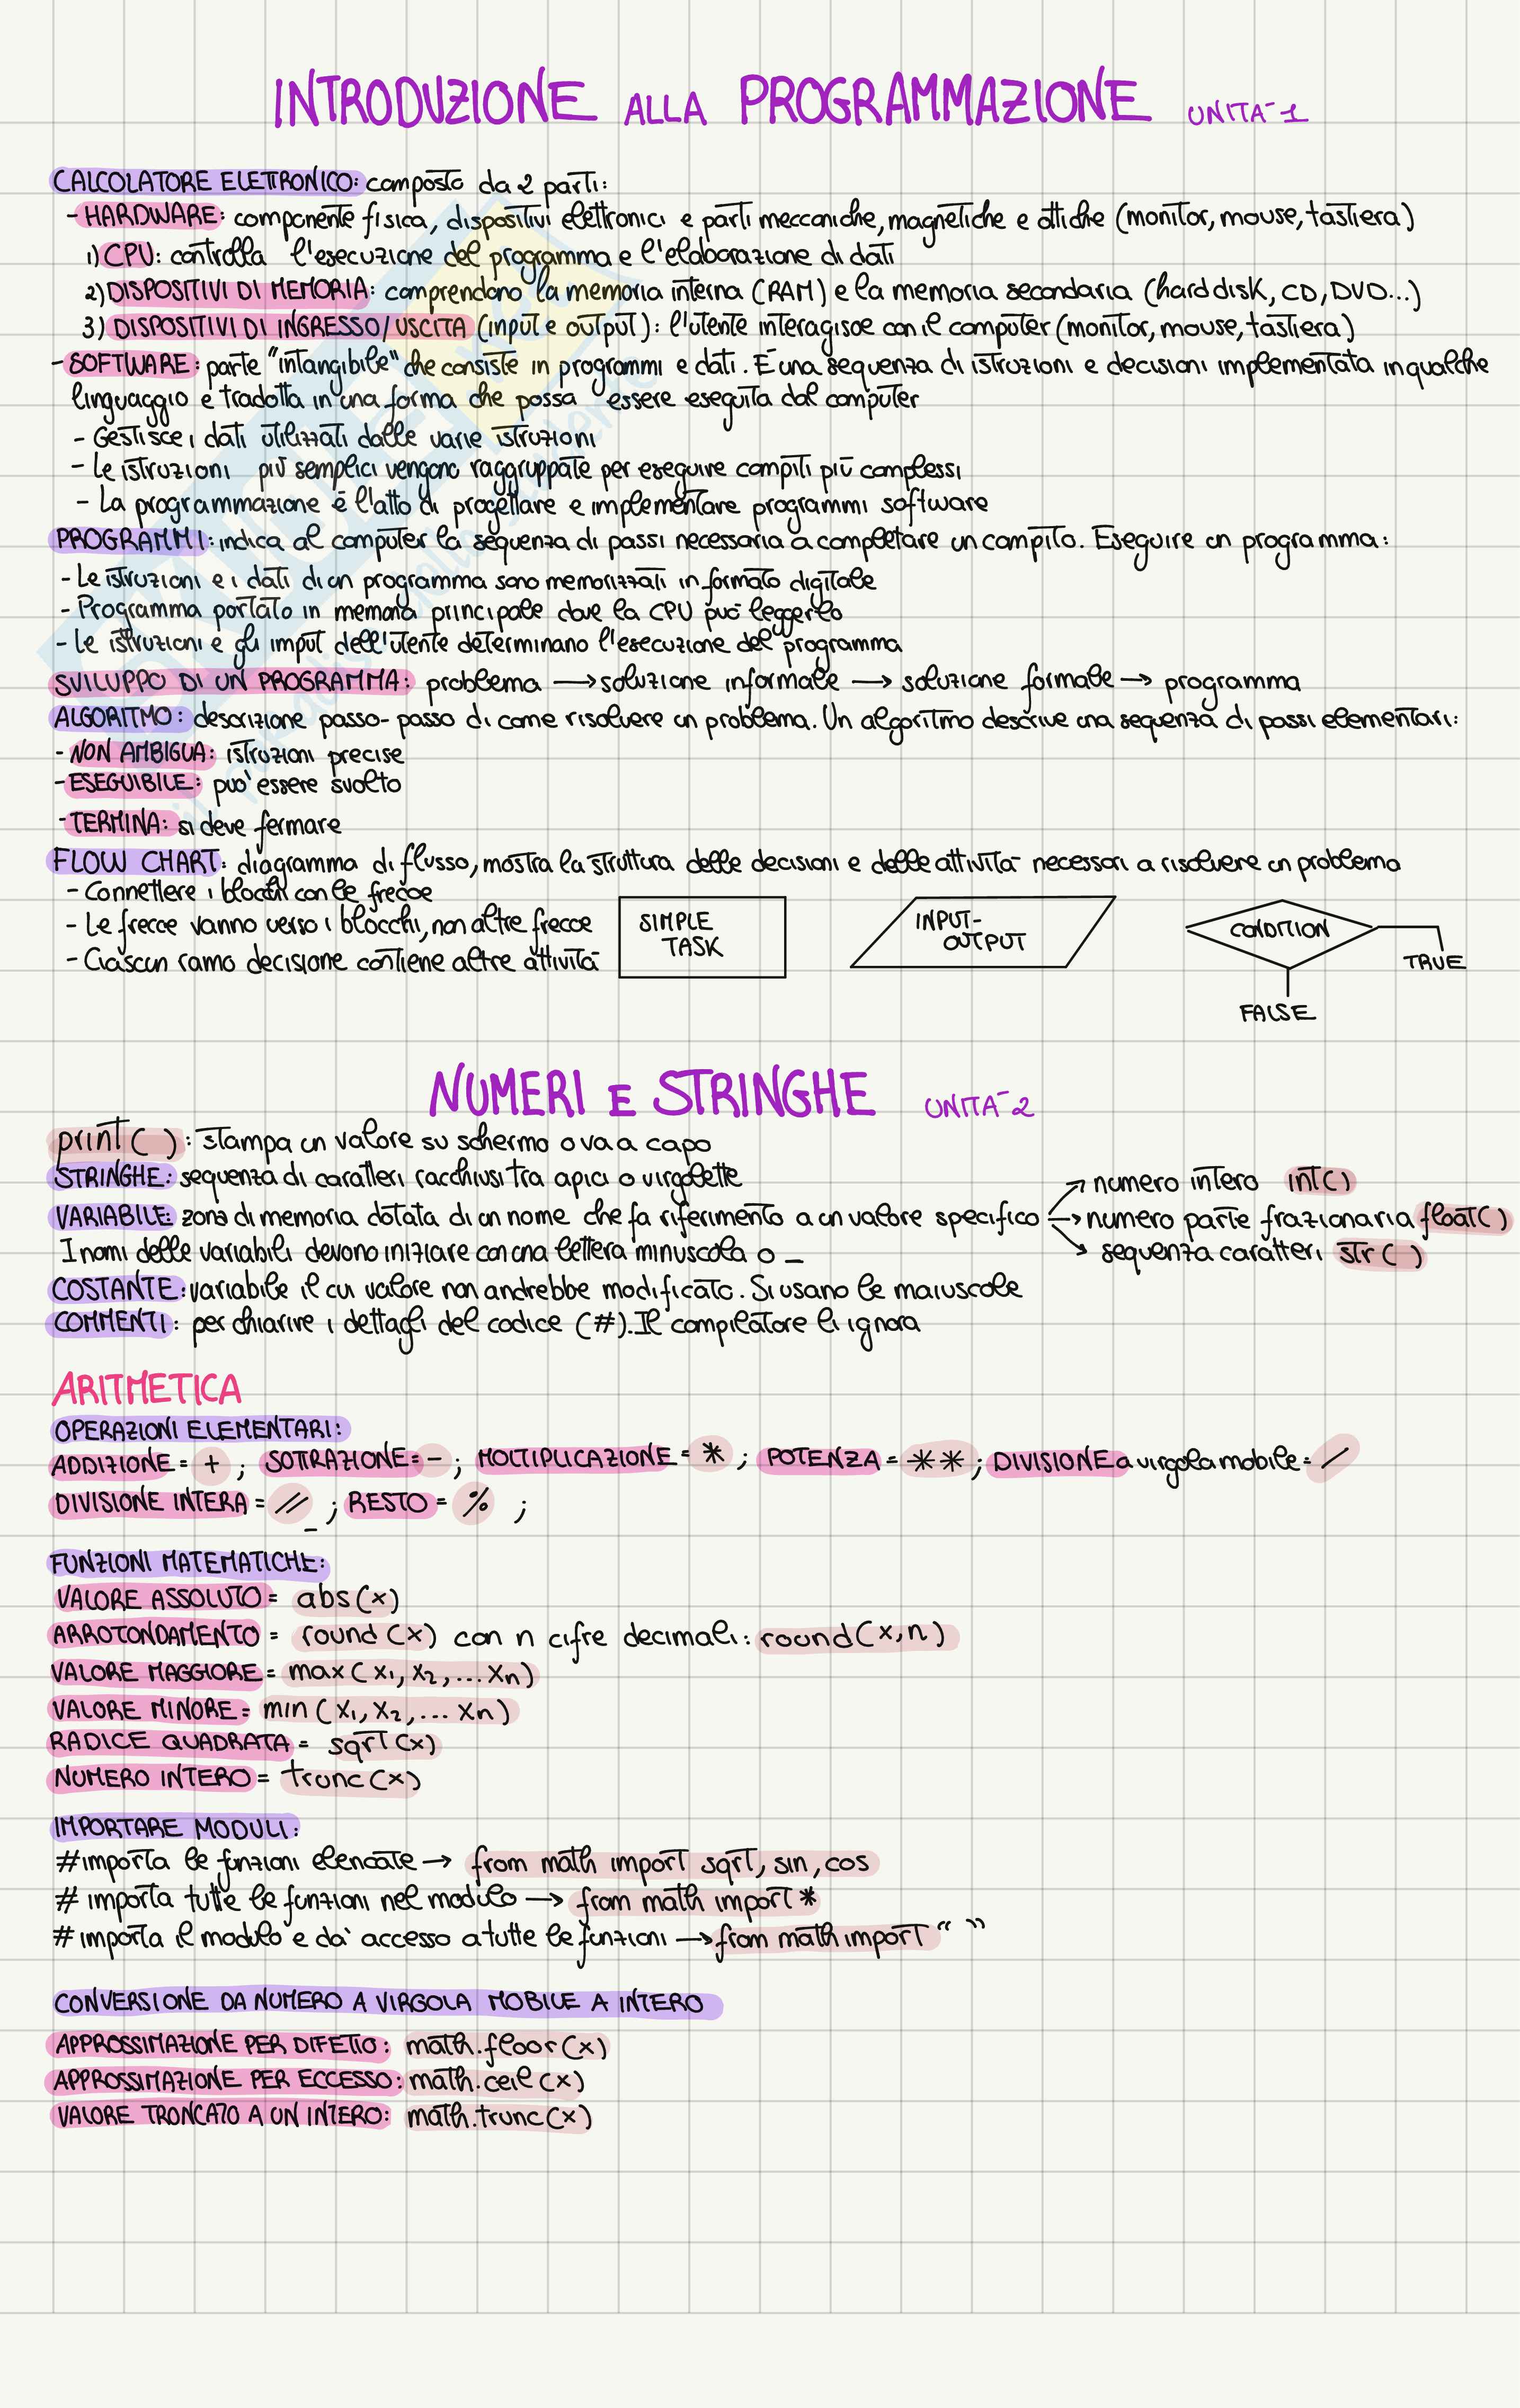 INTRODUZIONE ALLA PROGRAMMAZIONE UNITÀ 1
CALCOLATORE ELETTRONICO: composto da 2 parti:
- HARDWARE: componente fisica, dispositivi elettronici e parti meccaniche, magnetiche e ottiche (monitor, mouse, tastiera)
1) CPU: controlla l'esecuzione del programma e l'elaborazione di dati
2) DISPOSITIVI DI MEMORIA: comprendono la memoria interna (RAM) e la memoria secondaria (hard disk, CD, DVD...)
3) DISPOSITIVI DI INGRESSO/USCITA (input e output): l'utente interagisce con il computer (monitor, mouse, tastiera)
- SOFTWARE: parte "intangibile" che consiste in programmi e dati. È una sequenza di istruzioni e decisioni implementata in qualche
linguaggio e tradotta in una forma che possa essere eseguita dal computer
- Gestisce i dati utilizzati dalle varie istruzioni
- Le istruzioni più semplici vengono raggruppate per eseguire compiti più complessi
- La programmazione è l'atto di progettare e implementare programmi software
PROGRAMMI: indica al computer la sequenza di passi necessaria a completare un compito. Eseguire un programma:
- Le istruzioni e i dati di un programma sono memorizzati in formato digitale
- Programma portato in memoria principale dove la CPU può leggerlo
- Le istruzioni e gli imput dell'utente determinano l'esecuzione del programma
SVILUPPO DI UN PROGRAMMA: problema → soluzione informale → soluzione formale → programma
ALGORITMO: descrizione passo-passo di come risolvere un problema. Un algoritmo descrive una sequenza di passi elementari:
- NON AMBIGUA: istruzioni precise
- ESEGUIBILE: può essere svolto
- TERMINA: si deve fermare
FLOW CHART: diagramma di flusso, mostra la struttura delle decisioni e delle attività necessari a risolvere un problema
- Connettere i blocchi con le frecce
- Le frecce vanno verso i blocchi, non altre frecce
- Ciascun ramo decisione contiene altre attività
SIMPLE
TASK
INPUT-
OUTPUT
CONDITION
TRUE
FALSE
NUMERI E STRINGHE UNITÀ 2
print( ): stampa un valore su schermo o va a capo
STRINGHE: sequenza di caratteri racchiusi tra apici o virgolette
VARIABILE: zona di memoria dotata di un nome che fa riferimento a un valore specifico
→ numero intero int()
→ numero parte frazionaria float()
→ sequenza caratteri str( )
I nomi delle variabili devono iniziare con una lettera minuscola o _
COSTANTE: variabile il cui valore non andrebbe modificato. Si usano le maiuscole
COMMENTI: per chiarire i dettagli del codice (#). Il compilatore li ignora
ARITMETICA
OPERAZIONI ELEMENTARI:
ADDIZIONE = + ; SOTTRAZIONE = - ; MOLTIPLICAZIONE = * ; POTENZA = ** ; DIVISIONE a virgola mobile = /
DIVISIONE INTERA = // ; RESTO = % ;
FUNZIONI MATEMATICHE:
VALORE ASSOLUTO = abs(x)
ARROTONDAMENTO = round(x) con n cifre decimali: round(x,n)
VALORE MAGGIORE = max(x₁, x₂, ... xn)
VALORE MINORE = min(x₁, x₂, ... xn)
RADICE QUADRATA = sqrt(x)
NUMERO INTERO = trunc(x)
IMPORTARE MODULI:
# importa le funzioni elencate → from math import sqrt, sin, cos
# importa tutte le funzioni nel modulo → from math import *
# importa il modulo e dà accesso a tutte le funzioni → from math import " "
CONVERSIONE DA NUMERO A VIRGOLA MOBILE A INTERO
APPROSSIMAZIONE PER DIFETTO: math.floor(x)
APPROSSIMAZIONE PER ECCESSO: math.ceil(x)
VALORE TRONCATO A UN INTERO: math.trunc(x)